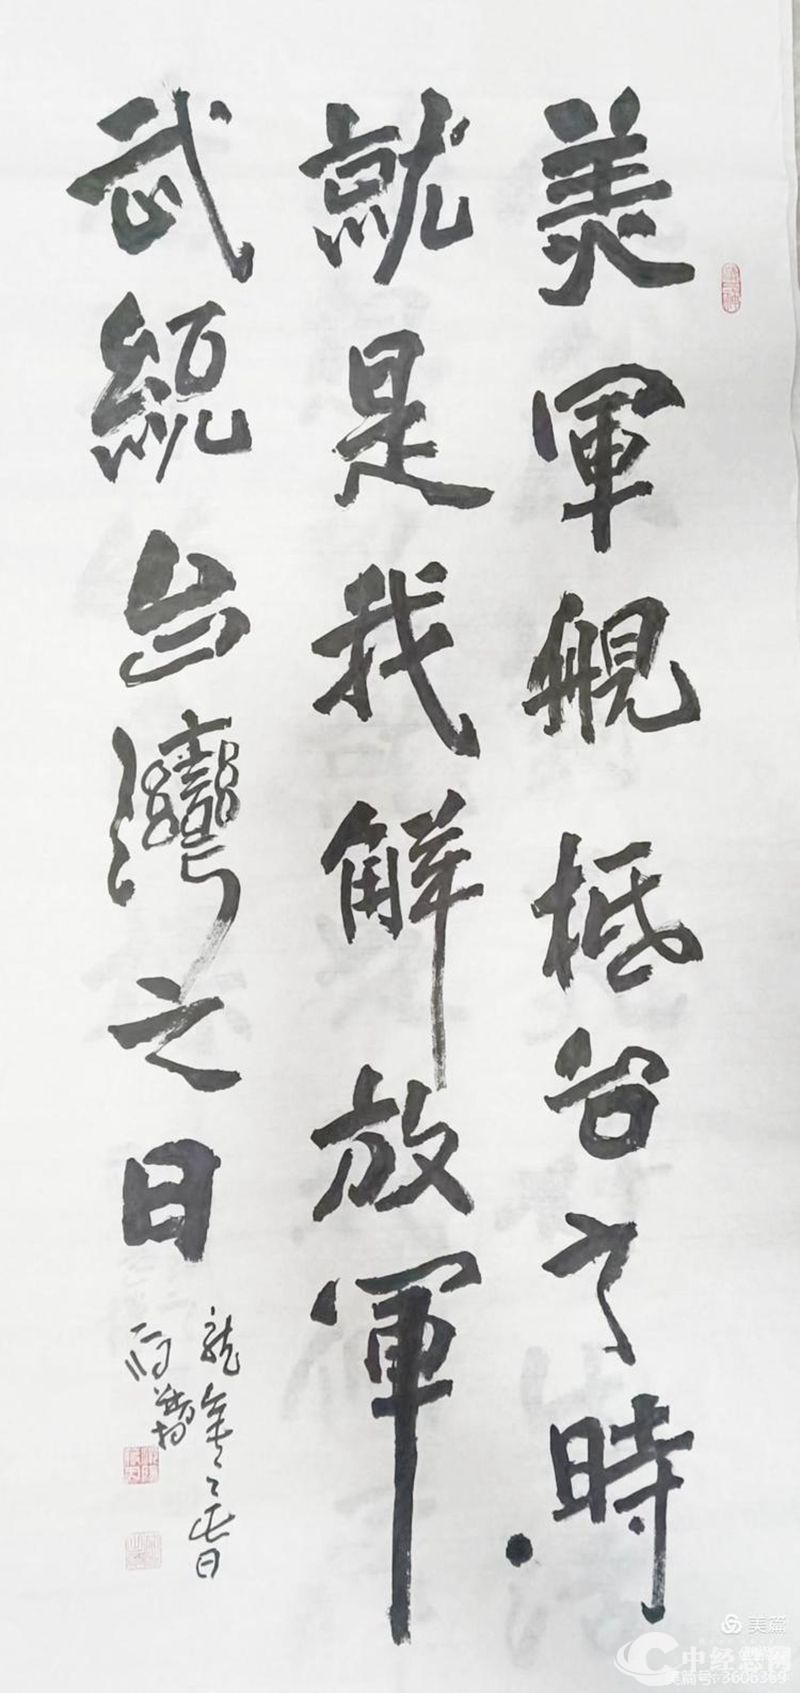 美軍舰抵台之時
就是我解放軍
武統台灣之日
龍年之春日
美篇
中经总网
美篇号:3606369